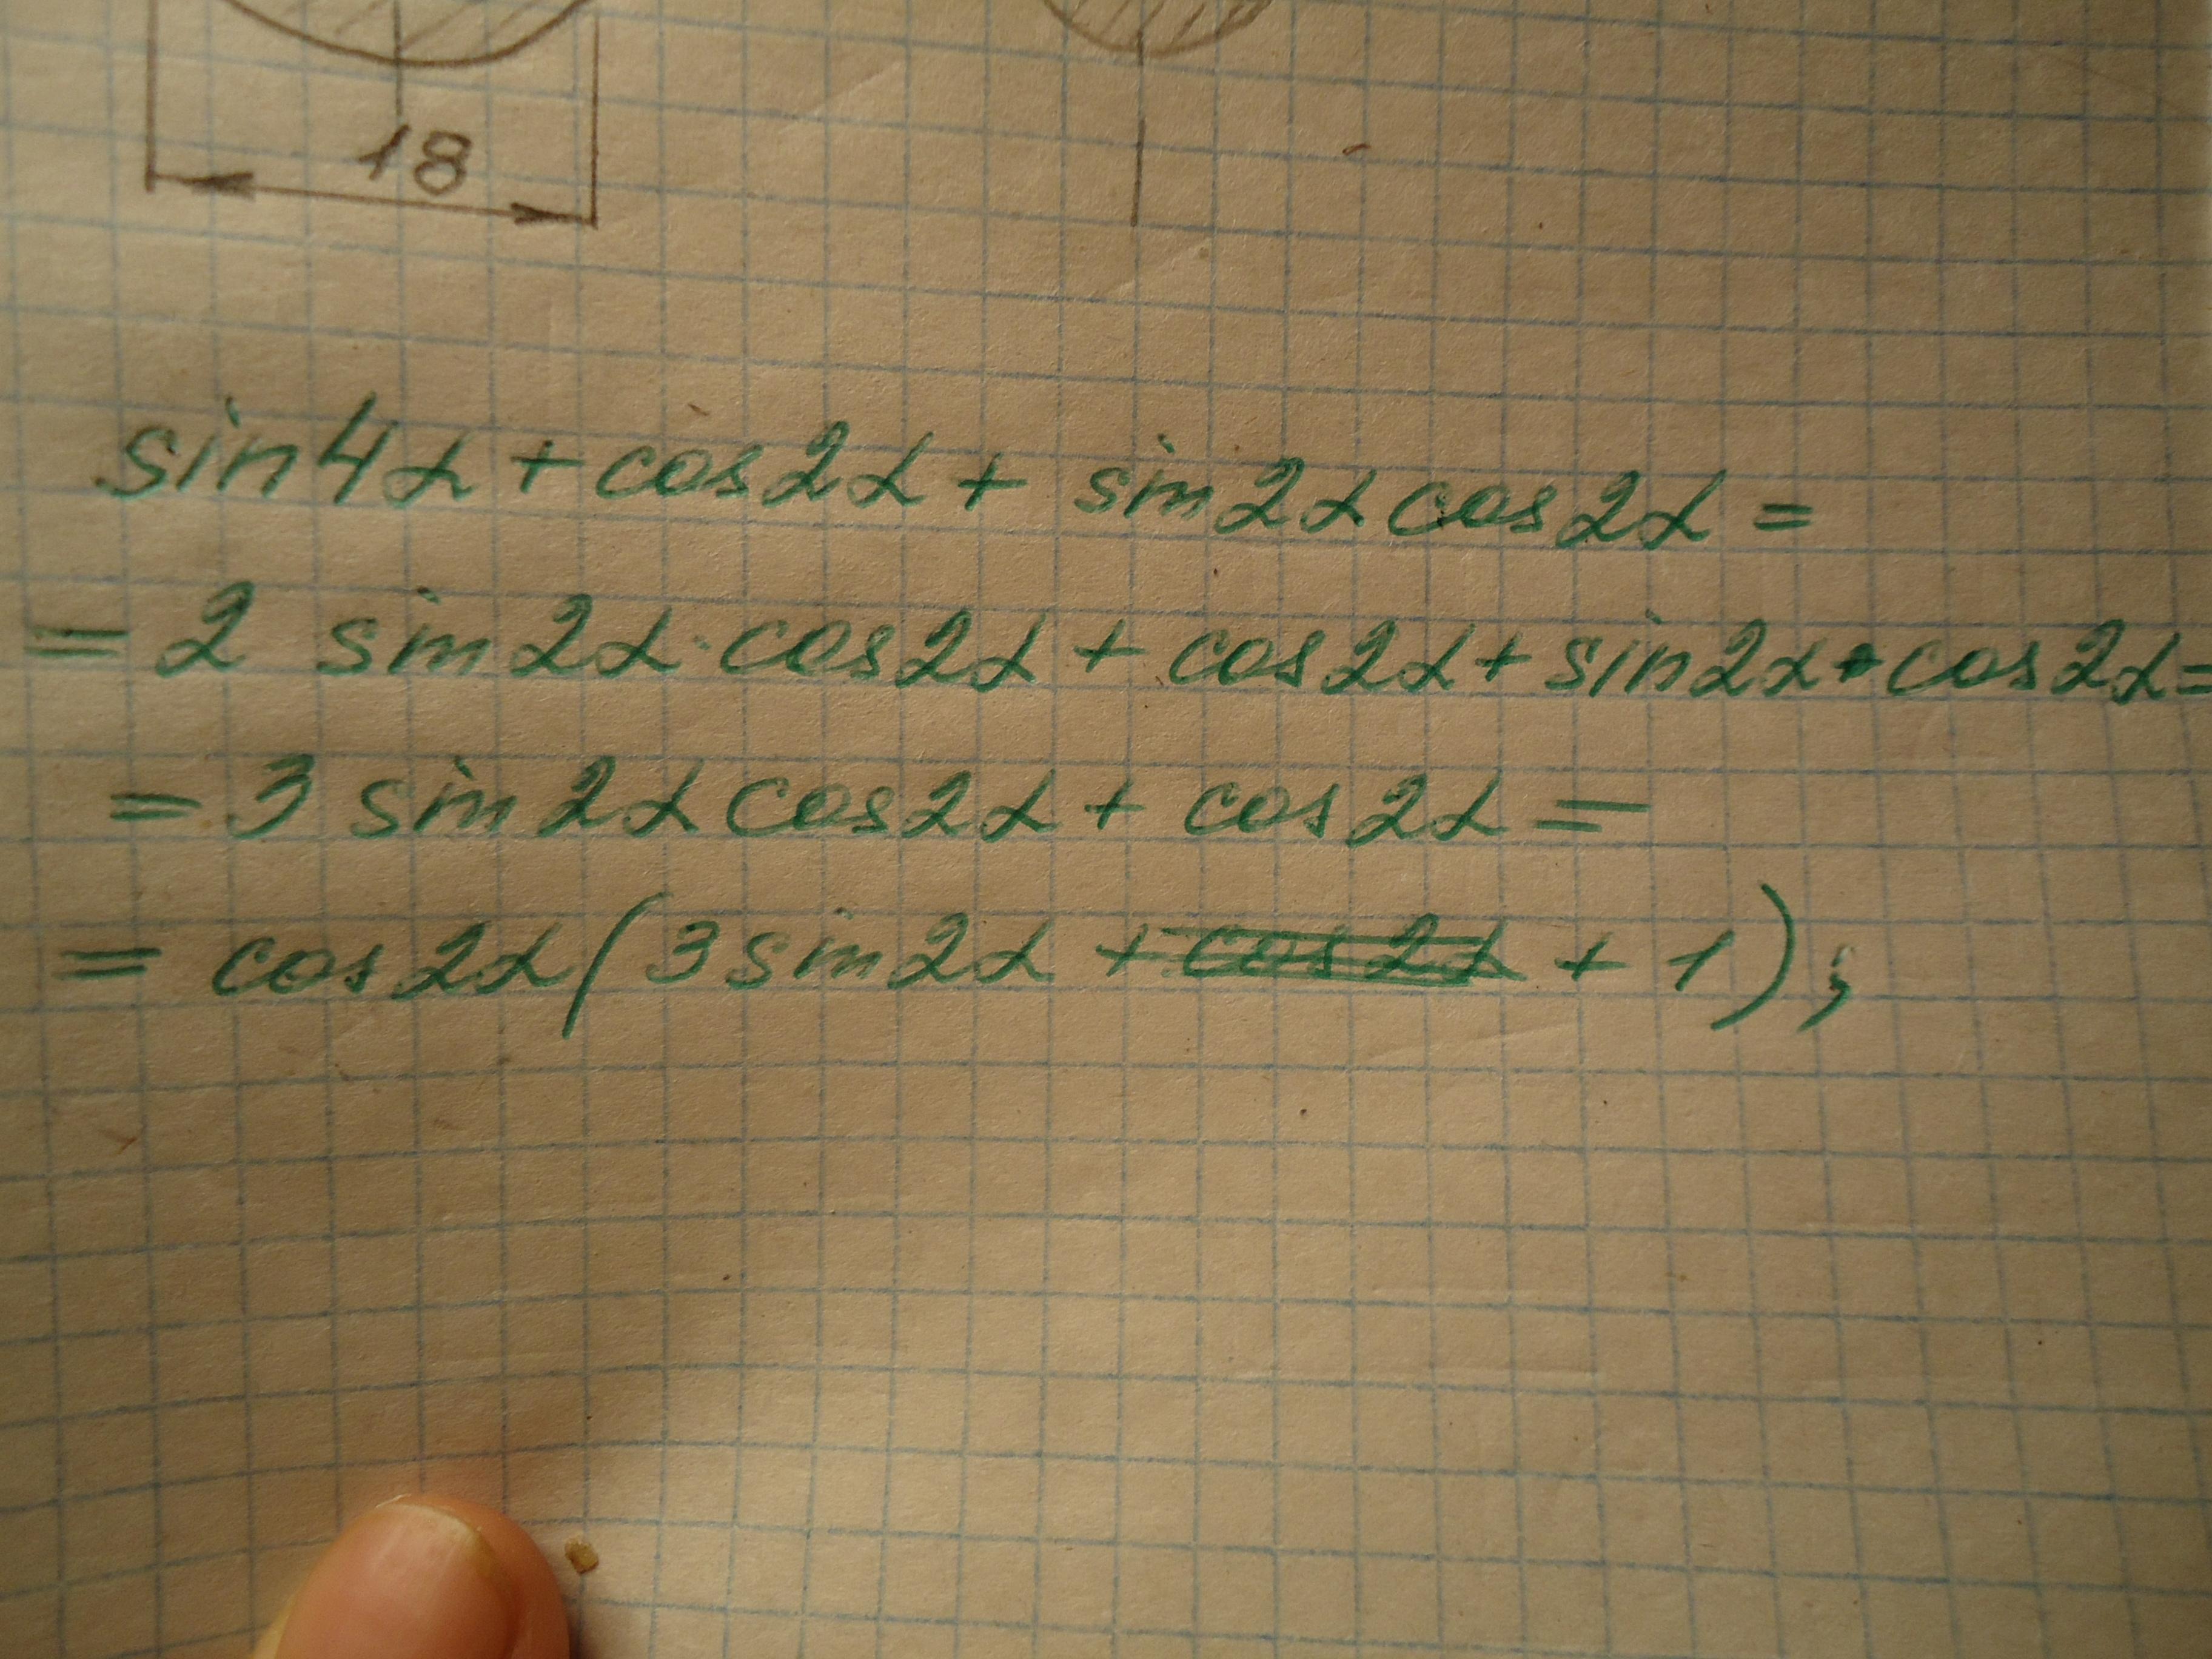 18
sin4α + cos2α + sin2α cos2α =
= 2 sin2α · cos2α + cos2α + sin2α · cos2α =
= 3 sin2α cos2α + cos2α =
= cos2α (3 sin2α + cos2α + 1);